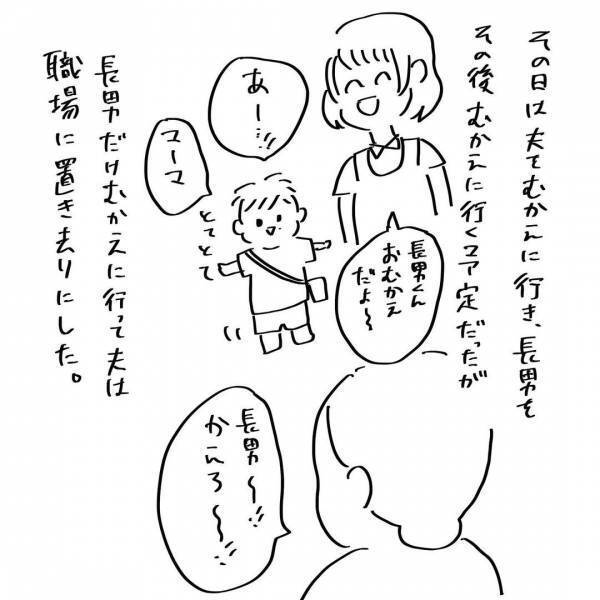 その日は夫をむかえに行き、長男を
その後むかえに行く予定だったが
長男くん
おむかえ
だよ〜
あー!!
マーマ
とてとて
長男だけむかえに行って夫は
職場に置き去りにした。
長男〜!!
かえろ〜!!